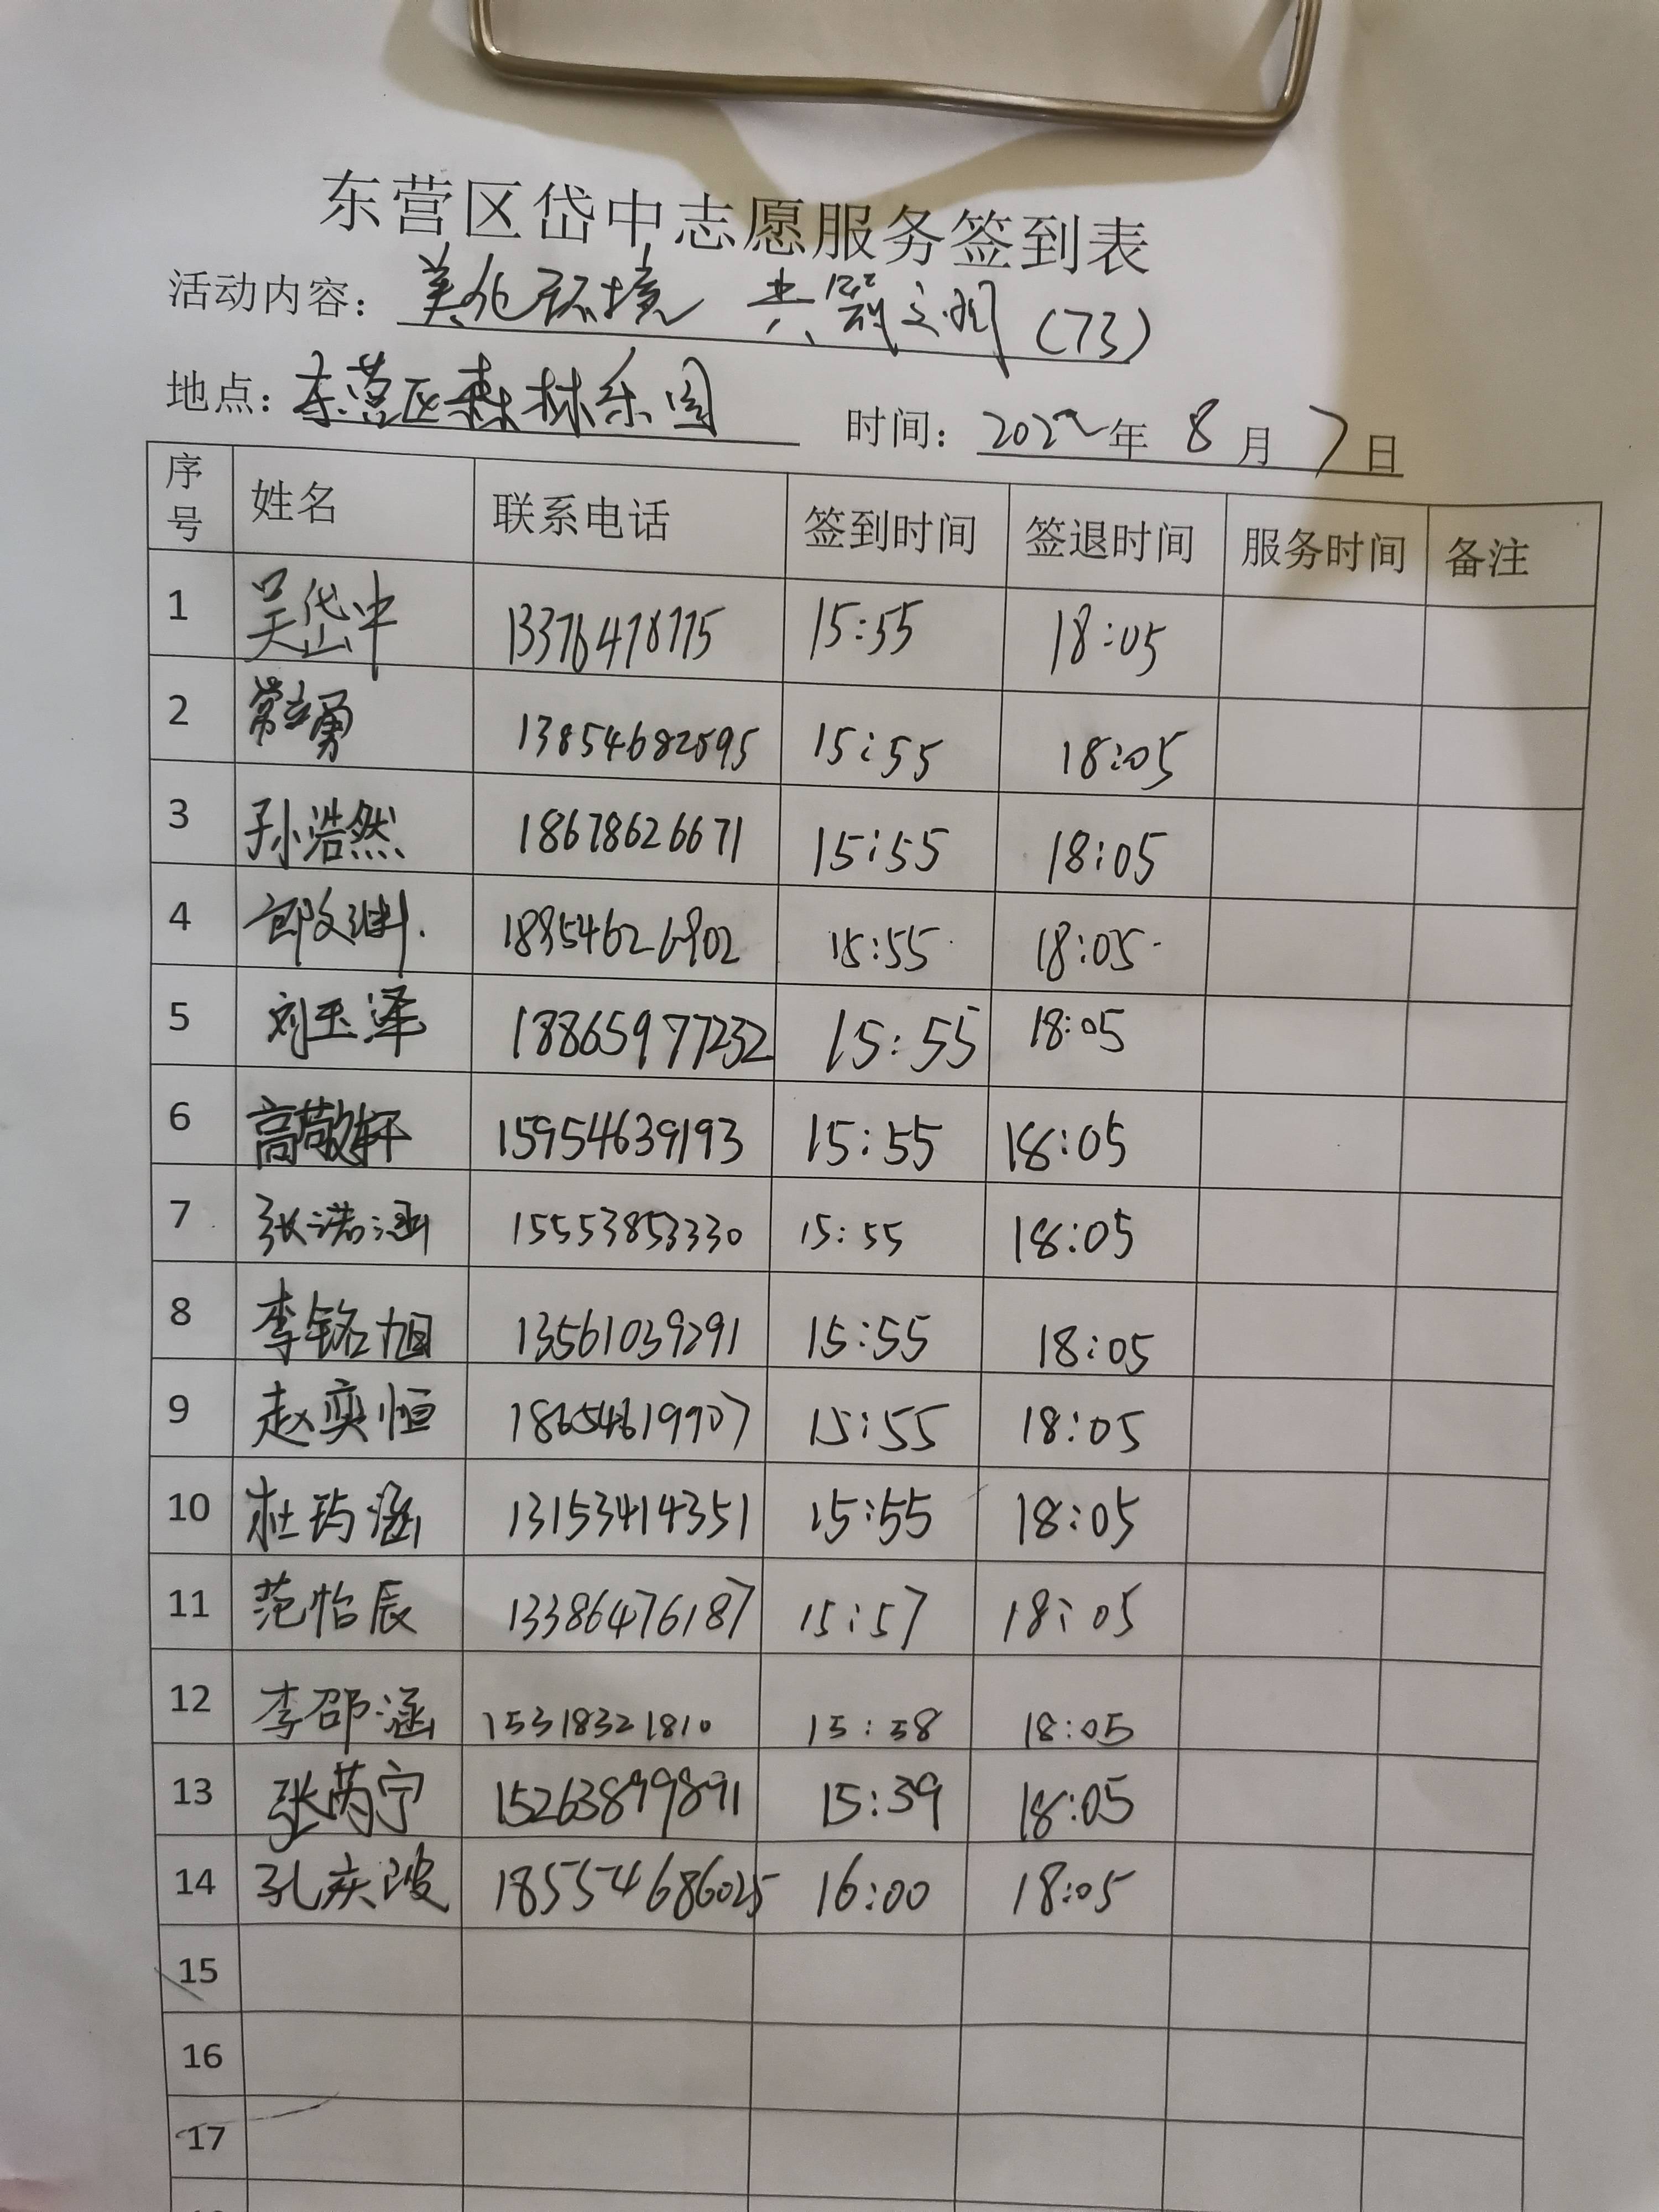 东营区岱中志愿服务签到表
活动内容：美化环境 共器文明（73）
地点：东营区森林乐园 时间：2022年 8月 7日
序号 姓名 联系电话 签到时间 签退时间 服务时间 备注
1 吴岱中 13376478775 15:55 18:05
2 常立勇 13854682595 15:55 18:05
3 孙浩然 18678626671 15:55 18:05
4 郎文渊 18954626902 15:55 18:05
5 刘玉泽 18865977232 15:55 18:05
6 高敬轩 15954639193 15:55 18:05
7 张诺涵 15553853330 15:55 18:05
8 李铭旭 13561039291 15:55 18:05
9 赵奕恒 18654619907 15:55 18:05
10 杜玙涵 13153414351 15:55 18:05
11 范怡辰 13386476187 15:57 18:05
12 李邵涵 15318321810 15:58 18:05
13 张芮宁 15263899891 15:39 18:05
14 孔庆波 18554686025 16:00 18:05
15
16
17